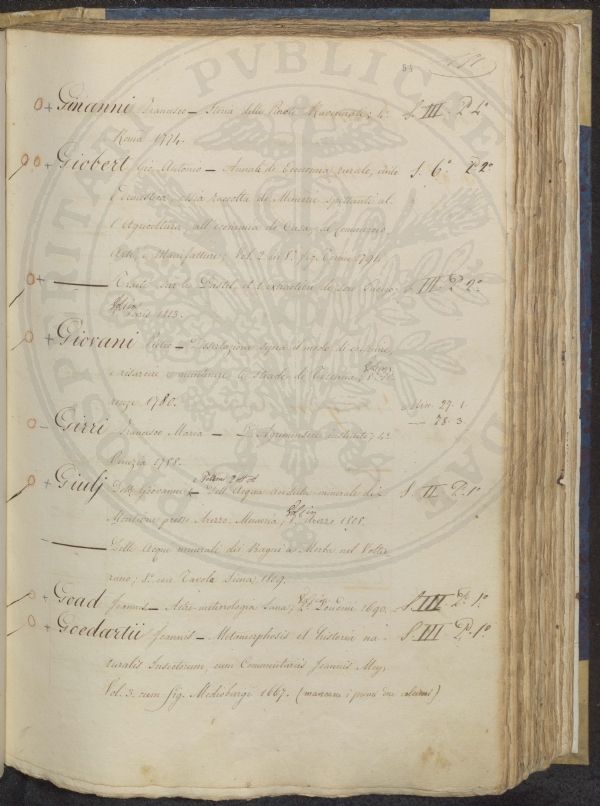 54
Ginanni Francesco — Storia delle Pinete Ravennati; 4° S. III. P. 2ª
Roma 1774.
Giobert Gio. Antonio — Annali di Economia rurale, civile S. 6ª P. 2ª
e domestica, ossia raccolta di Memorie spettanti al
l'Agricoltura, all'economia di Casa, al Commercio,
Arti, e Manifatture; Vol. 2 in 8° fig. Torino 1791.
— Traité sur le Pastel et l'extraction de son Indigo; S. III. P. 2ª
Paris 1813.
Giovani — Dissertazione sopra il modo di
e risarcire e mantenere le strade di Toscana; 8°
renze 1780. Misc. 27. 1
— 78. 3
Girri Francesco Maria — L'Agrimensore instruito; 4°
Venezia 1758.
Giulj Dott. Giovanni — Dell'Acqua Acidula minerale di S. II. P. 1ª
Montione presso Arezzo. Memoria; Arezzo 1808.
— Delle Acque minerali dei Bagni a Morba nel Volter
rano; 8° con Tavola Siena; 1809.
Goad Joannis — Astro-meteorologia Sana; Londini 1690. S. III. P. 1ª
Goedartii Joannis — Metamorphosis et historia na- S. III. P. 1ª
turalis Insectorum, cum Commentariis Joannis Mey,
Vol. 3. cum fig. Medioburgi 1667. (mancano i primi due volumi)
PVBLICAE